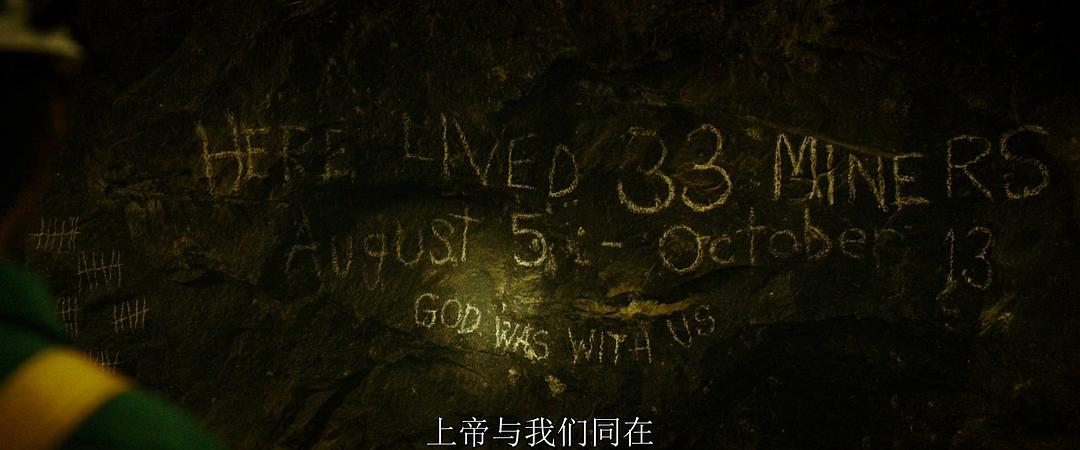 HERE LIVED 33 MINERS
August 5 - October 13
GOD WAS WITH US
上帝与我们同在